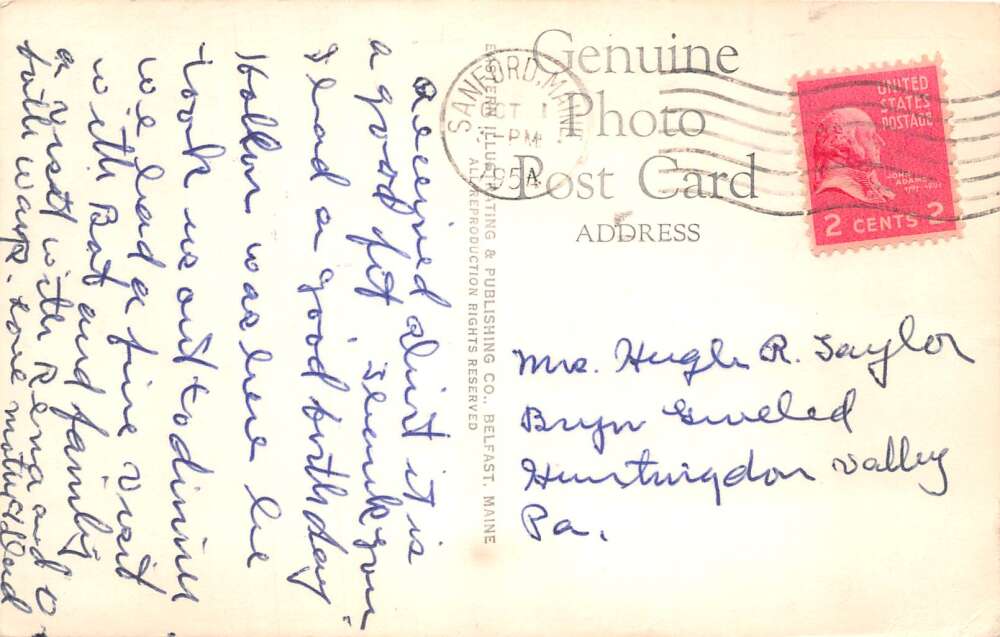 Received shirt it is
a good fit. Thank you
I had a good birthday
was here he
took us out to dinner
we had a fine visit
with Bat and family
a visit with Rena and O
both ways. Love mother & Dad
EASTERN ILLUSTRATING & PUBLISHING CO., BELFAST, MAINE
ALL REPRODUCTION RIGHTS RESERVED
SANFORD, MAINE.
OCT 1
PM
1954
Genuine
Photo
Post Card
ADDRESS
UNITED
STATES
POSTAGE
JOHN
ADAMS
1797-1801
2 CENTS 2
Mrs. Hugh R. Taylor
Bryn Gweled
Huntingdon Valley
Pa.